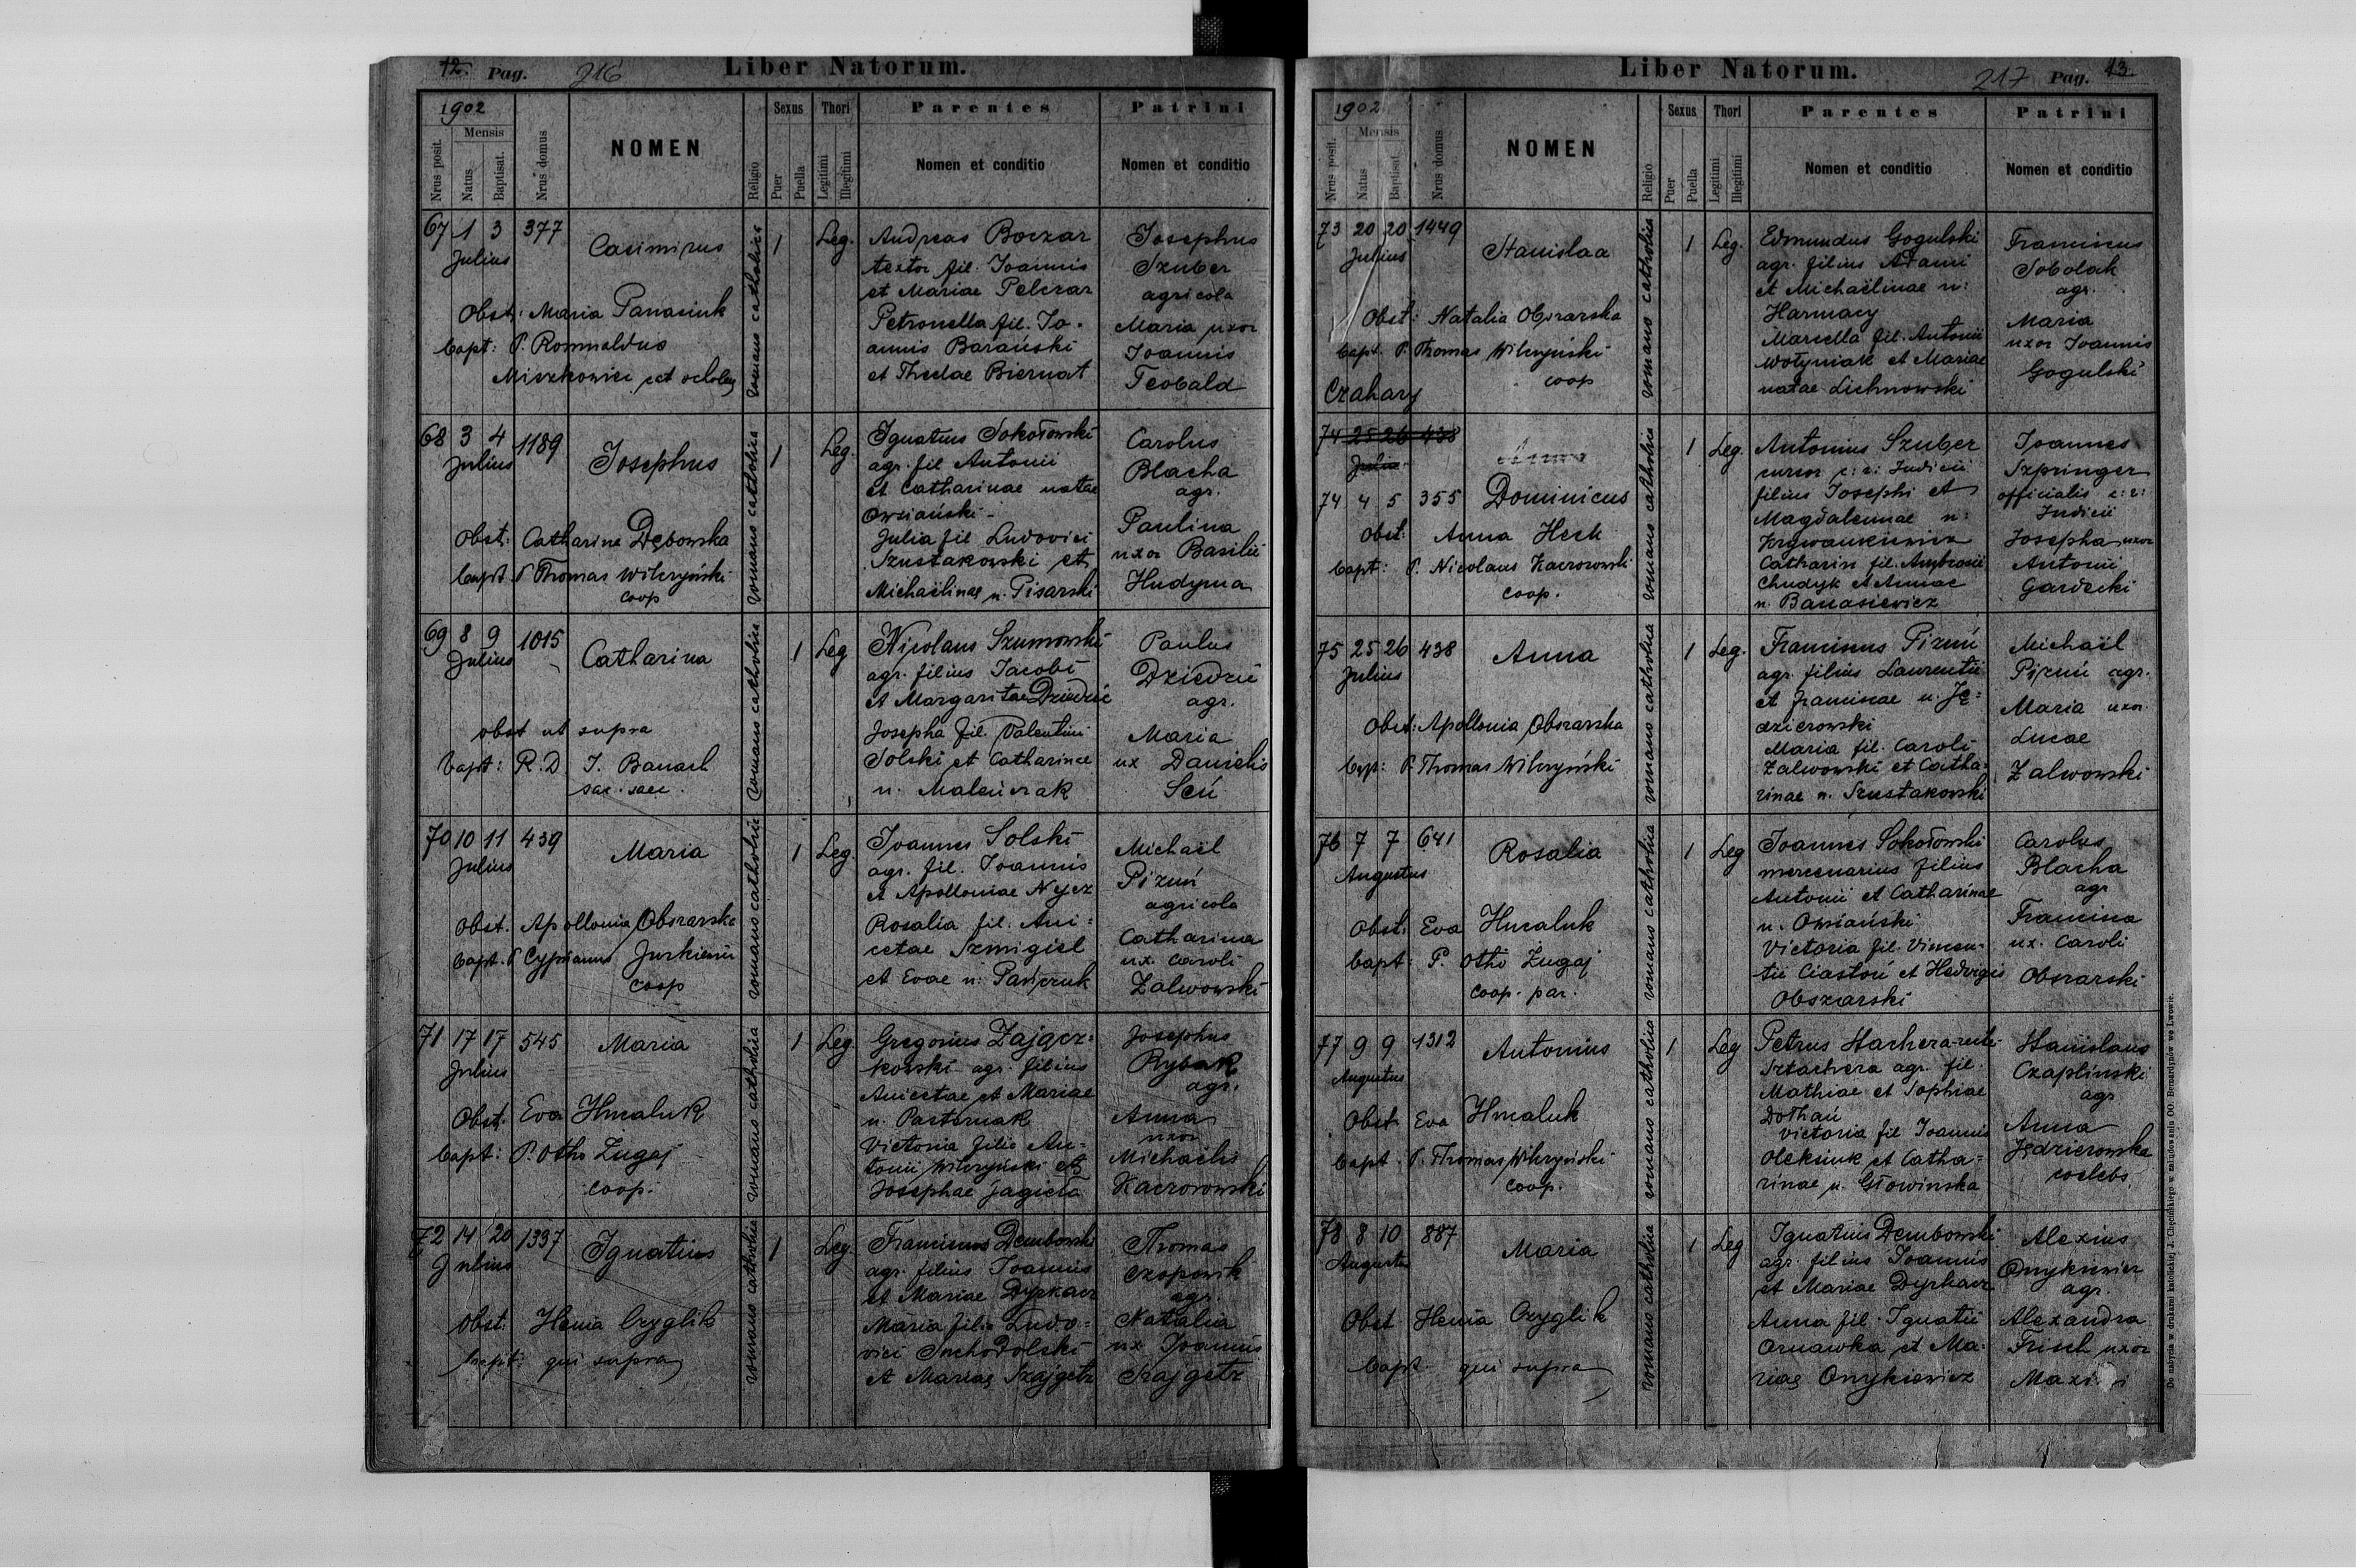 12. Pag. 216 Liber Natorum.
1902
Nrus posit.
Mensis
Natus
Baptisat.
Nrus domus
NOMEN
Religio
Sexus
Puer
Puella
Thori
Legitimi
Illegitimi
Parentes
Nomen et conditio
Patrini
Nomen et conditio
67 1 3 377
Julius
Casimirus
Obst: Maria Panasiuk
bapt: P. Romualdus
romano catholica
1
Leg.
Andreas Boczar
textor fil. Joannis
et Mariae Pelczar
Petronella fil. Jo-
annis Barański
et Theclae Biernat
Josephus
Szuber
agricola
Maria uxor
Joannis
Teobald
68 3 4 1189
Julius
Josephus
Obst: Catharina Dębowska
bapt P Thomas Wilczyński
coop
romano catholica
1
Leg.
Ignatius Sokołowski
agr. fil Antonii
et Catharinae natae
Owsiański -
Julia fil Ludovici
Szustakowski et
Michaëlinae n. Pisarski
Carolus
Blacha
agr.
Paulina
uxor Basilii
Hudyma
69 8 9 1015
Julius
Catharina
obst ut supra
bapt: R.D. J. Banach
romano catholica
1
Leg
Nicolaus Szumowski
agr. filius Jacobi
et Margaritae Dziedzic
Josepha fil. Valentini
Solski et Catharinae
Paulus
Dziedzic
agr.
Maria
ux Danielis
70 10 11 439
Julius
Maria
Obst. Apollonia Obszarska
bapt. P Cyprianus
coop
romano catholica
1
Leg.
Joannes Solski
agr. fil. Joannis
et Apolloniae Nycz
Rosalia fil. Ani=
cetae Szmigiel
et Evae n:
Michaël
agricola
Catharina
ux Caroli
Zalwowski
71 17 17 545
Julius
Maria
Obst. Eva Hucaluk
bapt: P. Otho Zugaj
coop.
romano catholica
1
Leg.
Gregorius Zającz=
kowski agr. filius
Anicetae et Mariae
n. Pasternak
Victoria filia An=
tonii Wilczyński et
Josephae Jagiela
Josephus
Rybak
agr.
Anna
uxor
Michaelis
Kaczorowski
72 14 20 1337
Julius
Ignatius
Obst: Henia Czyglik
bapt: qui supra
romano catholica
1
Leg.
Franciscus Dembowski
agr. filius Joannis
et Mariae Dyrkacz
Maria filia Ludo=
vici Suchodolski
et Mariae Szajgetz
Thomas
agr.
Natalia
ux Joannis
Szajgetz
Liber Natorum. 217 Pag. 13.
1902
Nrus posit.
Mensis
Natus
Baptisat.
Nrus domus
NOMEN
Religio
Sexus
Puer
Puella
Thori
Legitimi
Illegitimi
Parentes
Nomen et conditio
Patrini
Nomen et conditio
73 20 20 1449
Julius
Stanislaa
Obst: Natalia Obszarska
bapt. P. Thomas Wilczyński
coop
Czahary
romano catholica
1
Leg.
Edmundus Gogulski
agr. filius Adami
et Michaëlinae n:
Harmacy
Marcella fil. Antonii
Wołyniak et Mariae
natae Lichnowski
Franciscus
Sobolak
agr.
Maria
uxor Joannis
Gogulski
74 25 26 438
Julius
Anna
74 4 5 355 Dominicus
Obst: Anna Heck
bapt: P. Nicolaus Kaczorowski
coop.
romano catholica
1
Leg.
Antonius Szuber
cursor c: r: Judicii
filius Josephi et
Magdalenae n:
Krzywankiewicz
Catharin fil. Ambrosii
Chudyk et Annae
n. Banasiewicz
Joannes
Szpringer
officialis c: r:
Judicii
Josepha uxor
Antonii
Gardecki
75 25 26 438
Julius
Anna
Obst: Apollonia Obszarska
bap: P. Thomas Wilczyński
romano catholica
1
Leg.
agr. filius Laurentii
et Franciscae n. Ję=
dzierowski
Maria fil. Caroli
Zalwowski et Catha=
rinae n. Szustakowski
Michaël
agr.
Maria uxor
Lucae
Zalwowski
76 7 7 641
Augustus
Rosalia
Obst: Eva Hucaluk
bapt: P. Otho Zugaj
coop. par.
romano catholica
1
Leg
Joannes Sokołowski
mercenarius filius
Antonii et Catharinae
n. Owsiański
Victoria fil. Vincen=
tii Ciastoń et Hedvigis
Obszarski
Carolus
Blacha
agr
Francisca
ux. Caroli
Obszarski
77 9 9 1312
Augustus
Antonius
Obst: Eva Hucaluk
bapt. P. Thomas Wilczyński
coop.
romano catholica
1
Leg
Petrus
Sztachera agr. fil.
Mathiae et Sophiae
Dothań
Victoria fil Joannis
Oleksiuk et Catha=
rinae n. Głowinska
Stanislaus
Czaplinski
agr
Anna
Jędzierowska
coelebs.
78 8 10 887
Augustus
Maria
Obst Henia Czyglik
bapt. qui supra
romano catholica
1
Leg
Ignatius Dembowski
agr. filius Joannis
et Mariae Dyrkacz
Anna fil. Ignatii
Ornawka et Ma-
riae Onykiewicz
Alexius
Onykiewicz
agr.
Alexandra
Frisch uxor
Do nabycia w drukarni katolickiej J. Chęcińskiego w zabudowaniu OO. Bernardynów we Lwowie.